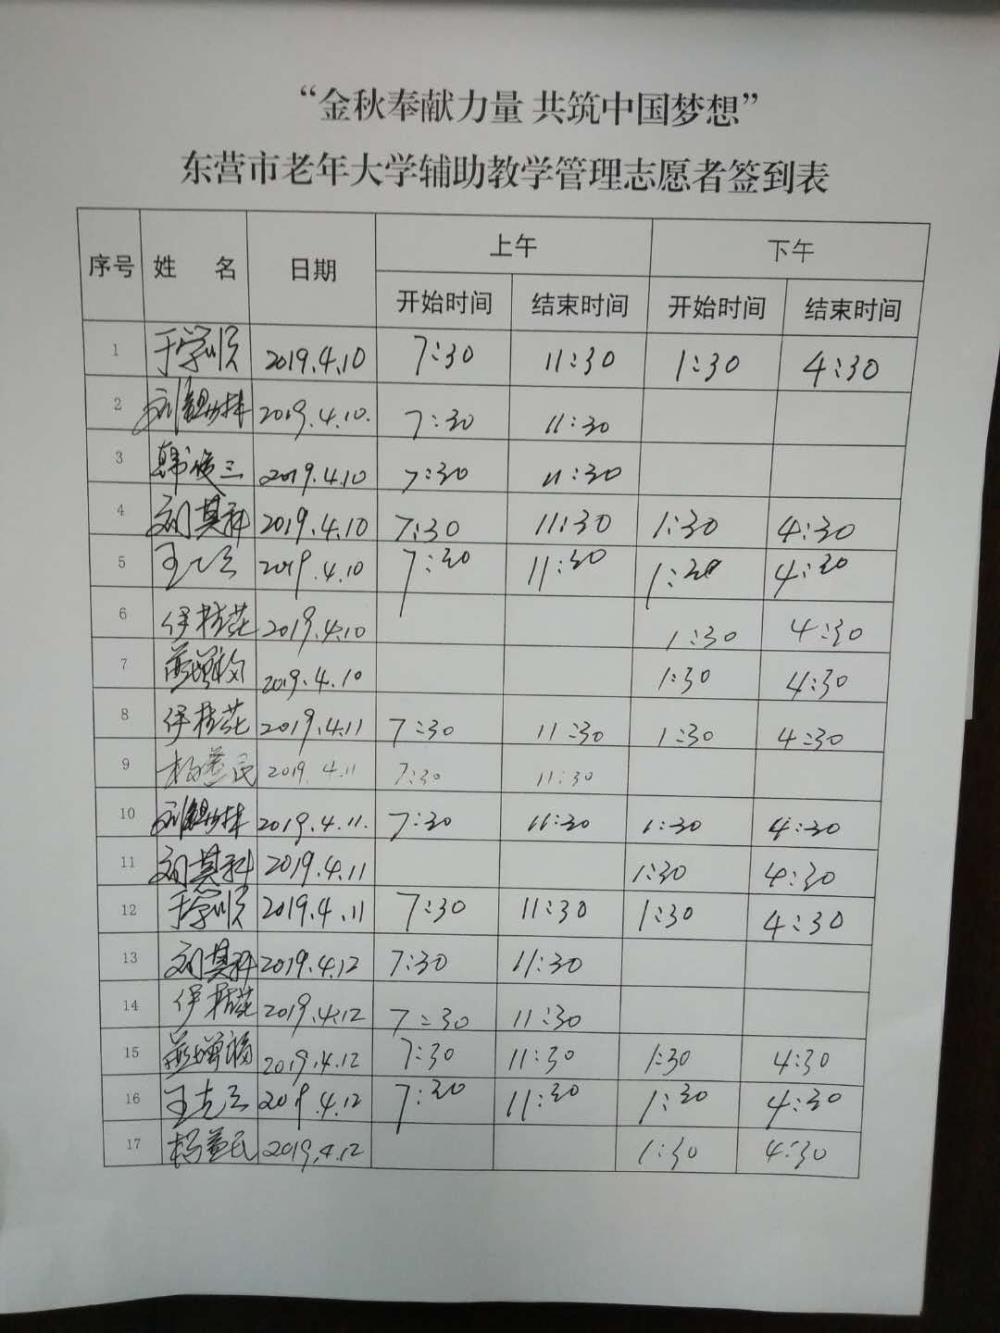 “金秋奉献力量 共筑中国梦想”
东营市老年大学辅助教学管理志愿者签到表
序号 姓 名 日期 上午 下午
开始时间 结束时间 开始时间 结束时间
1 于学顺 2019.4.10 7:30 11:30 1:30 4:30
2 2019.4.10. 7:30 11:30
3 韩俊三 2019.4.10 7:30 11:30
4 刘其科 2019.4.10 7:30 11:30 1:30 4:30
5 2019.4.10 7:30 11:30 1:30 4:30
6 伊桂花 2019.4.10 1:30 4:30
7 2019.4.10 1:30 4:30
8 伊桂花 2019.4.11 7:30 11:30 1:30 4:30
9 杨益民 2019.4.11 7:30 11:30
10 2019.4.11. 7:30 11:30 1:30 4:30
11 刘其科 2019.4.11 1:30 4:30
12 于学顺 2019.4.11 7:30 11:30 1:30 4:30
13 刘其科 2019.4.12 7:30 11:30
14 伊桂花 2019.4.12 7:30 11:30
15 2019.4.12 7:30 11:30 1:30 4:30
16 2019.4.12 7:30 11:30 1:30 4:30
17 杨益民 2019.4.12 1:30 4:30